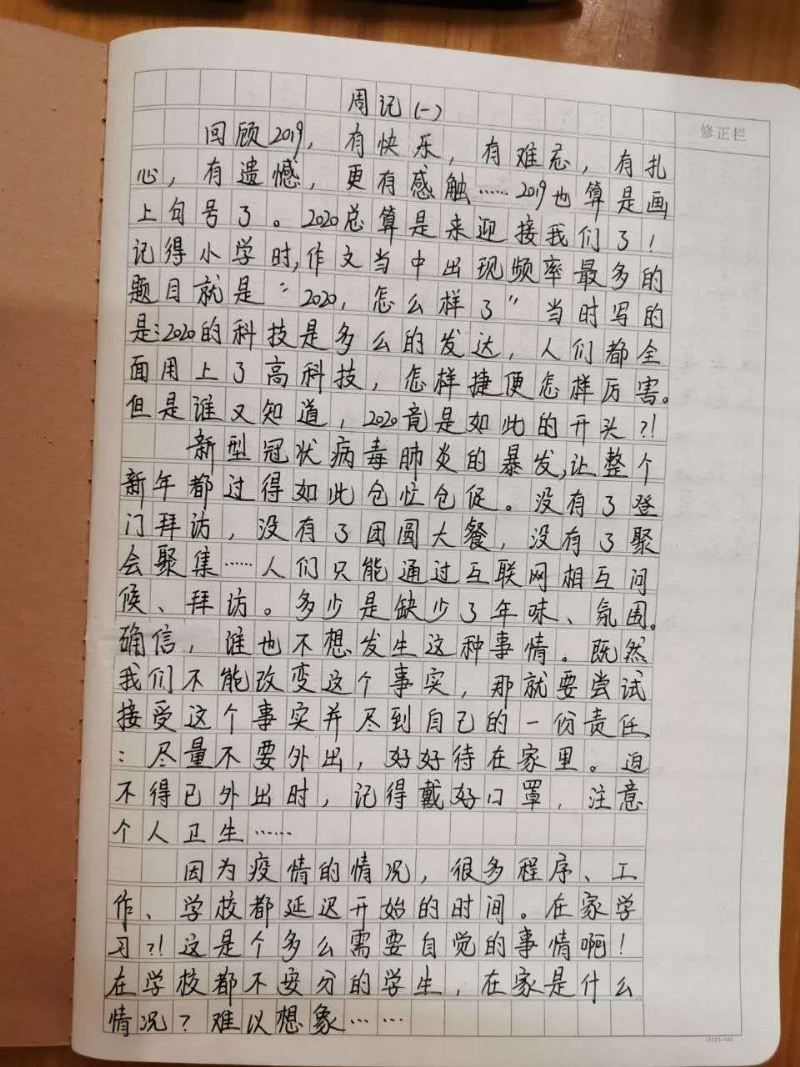 周记(一)
修正栏
回顾2019，有快乐，有难忘，有扎
心，有遗憾，更有感触……2019也算是画
上句号了。2020总算是来迎接我们了！
记得小学时，作文当中出现频率最多的
题目就是“2020，怎么样了”当时写的
是：2020的科技是多么的发达，人们都全
面用上了高科技，怎样捷便怎样厉害。
但是谁又知道，2020竟是如此的开头?!
新型冠状病毒肺炎的暴发，让整个
新年都过得如此仓忙仓促。没有了登
门拜访，没有了团圆大餐，没有了聚
会聚集……人们只能通过互联网相互问
候、拜访。多少是缺少了年味、氛围。
确信，谁也不想发生这种事情。既然
我们不能改变这个事实，那就要尝试
接受这个事实并尽到自己的一份责任
：尽量不要外出，好好待在家里。迫
不得已外出时，记得戴好口罩，注意
个人卫生……
因为疫情的情况，很多程序、工
作、学校都延迟开始的时间。在家学
习?!这是个多么需要自觉的事情啊！
在学校都不安分的学生，在家是什么
情况？难以想象……